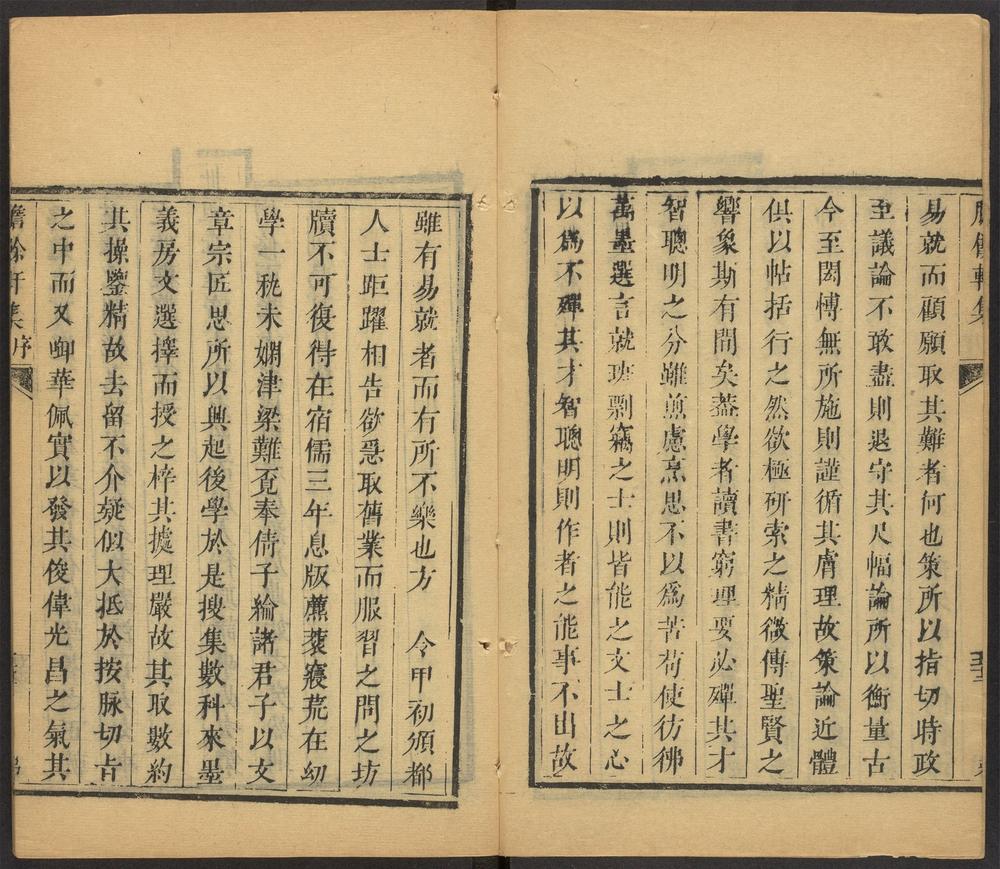 易就而顧願取其難者何也策所以指切時政
至議論不敢盡則退守其尺幅論所以衡量古
今至閎博無所施則謹循其膚理故策論近體
供以帖括行之然欲極研索之精微傳聖賢之
響象斯有間矣葢學者讀書窮理要必殫其才
智聰明之分雖煎慮烹思不以爲苦苟使彷彿
萬墨選言就班剽竊之士則皆能之文士之心
以爲不殫其才智聰明則作者之能事不出故
雖有易就者而有所不樂也方　令甲初頒都
人士距躍相告欲亟取舊業而服習之問之坊
牘不可復得在宿儒三年息版藨蔉寖荒在幼
學一秇未嫻津梁難覓奉倩子綸諸君子以文
章宗匠思所以興起後學於是搜集數科來墨
義房文選擇而授之梓其據理嚴故其取數約
其操鑒精故去留不介疑似大抵於按脉切占
之中而又㗸華佩實以發其俊偉光昌之氣其
集序